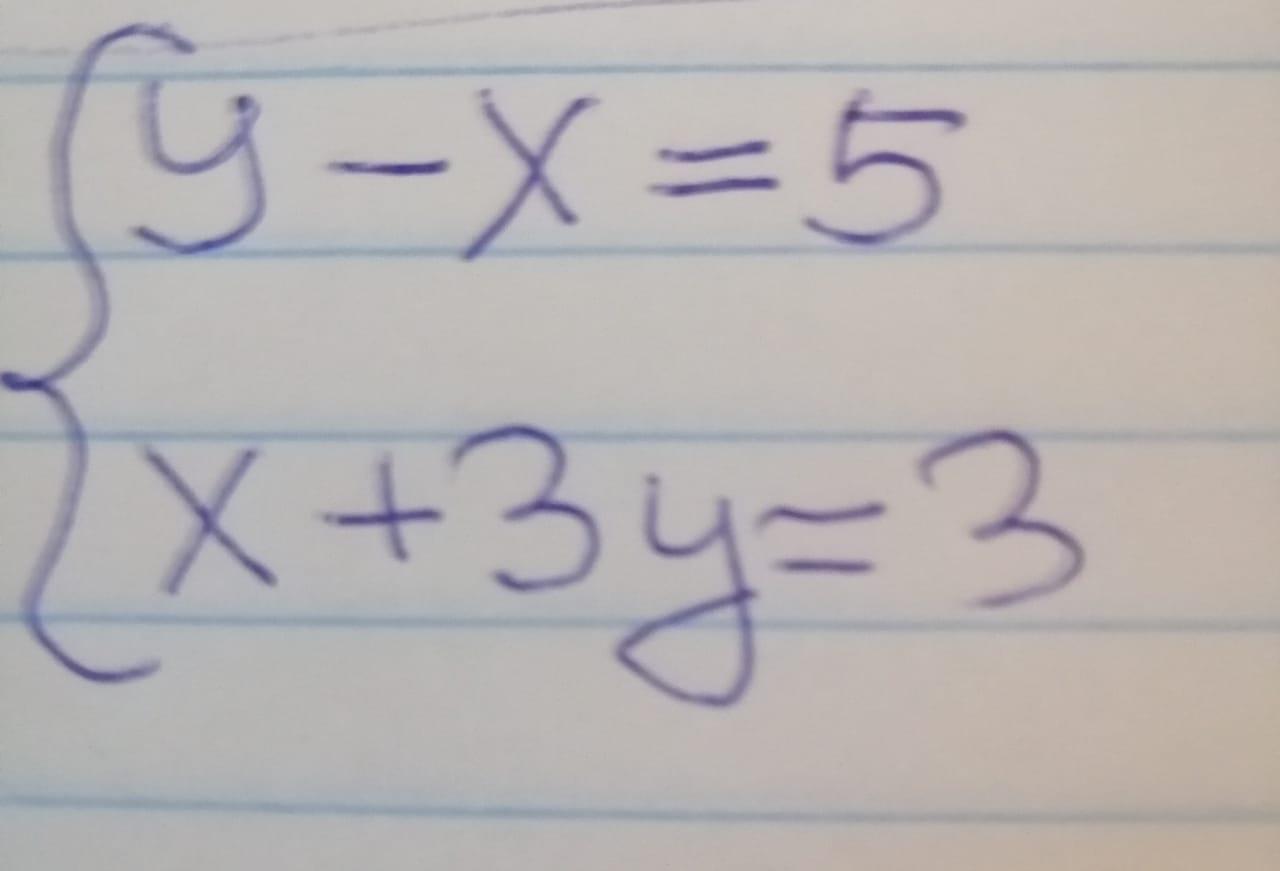 y - x = 5
x + 3y = 3